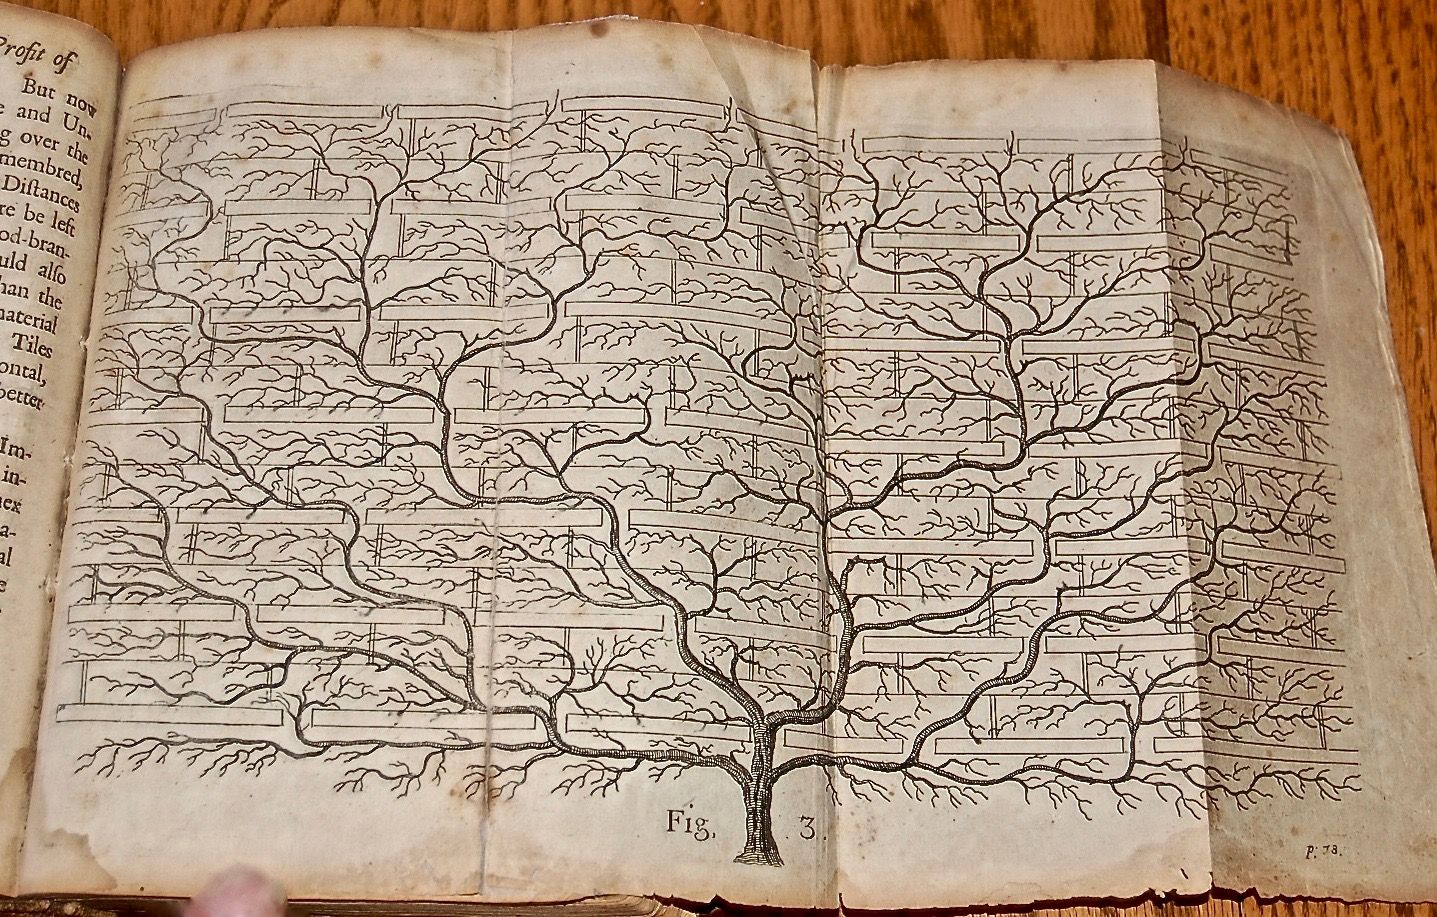 Profit of
But now
e and Un-
g over the
membred,
Diſtances
re be left
od-bran-
uld alſo
han the
material
Tiles
ontal,
better
Im-
in-
nex
a-
al
e
Fig. 3.
p. 78.